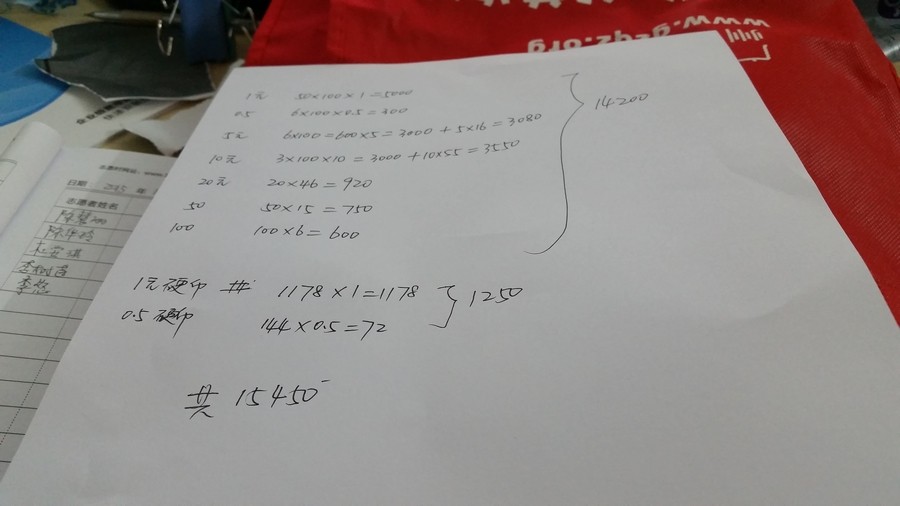 www.gegz.org
1元 50×100×1=5000
0.5 6×100×0.5=300
5元 6×100=600×5=3000+5×16=3080
10元 3×100×10=3000+10×55=3550
20元 20×46=920
50 50×15=750
100 100×6=600
14200
1元硬币 共 1178×1=1178
0.5硬币 144×0.5=72
1250
共 15450
日期 2015 年
志愿者姓名